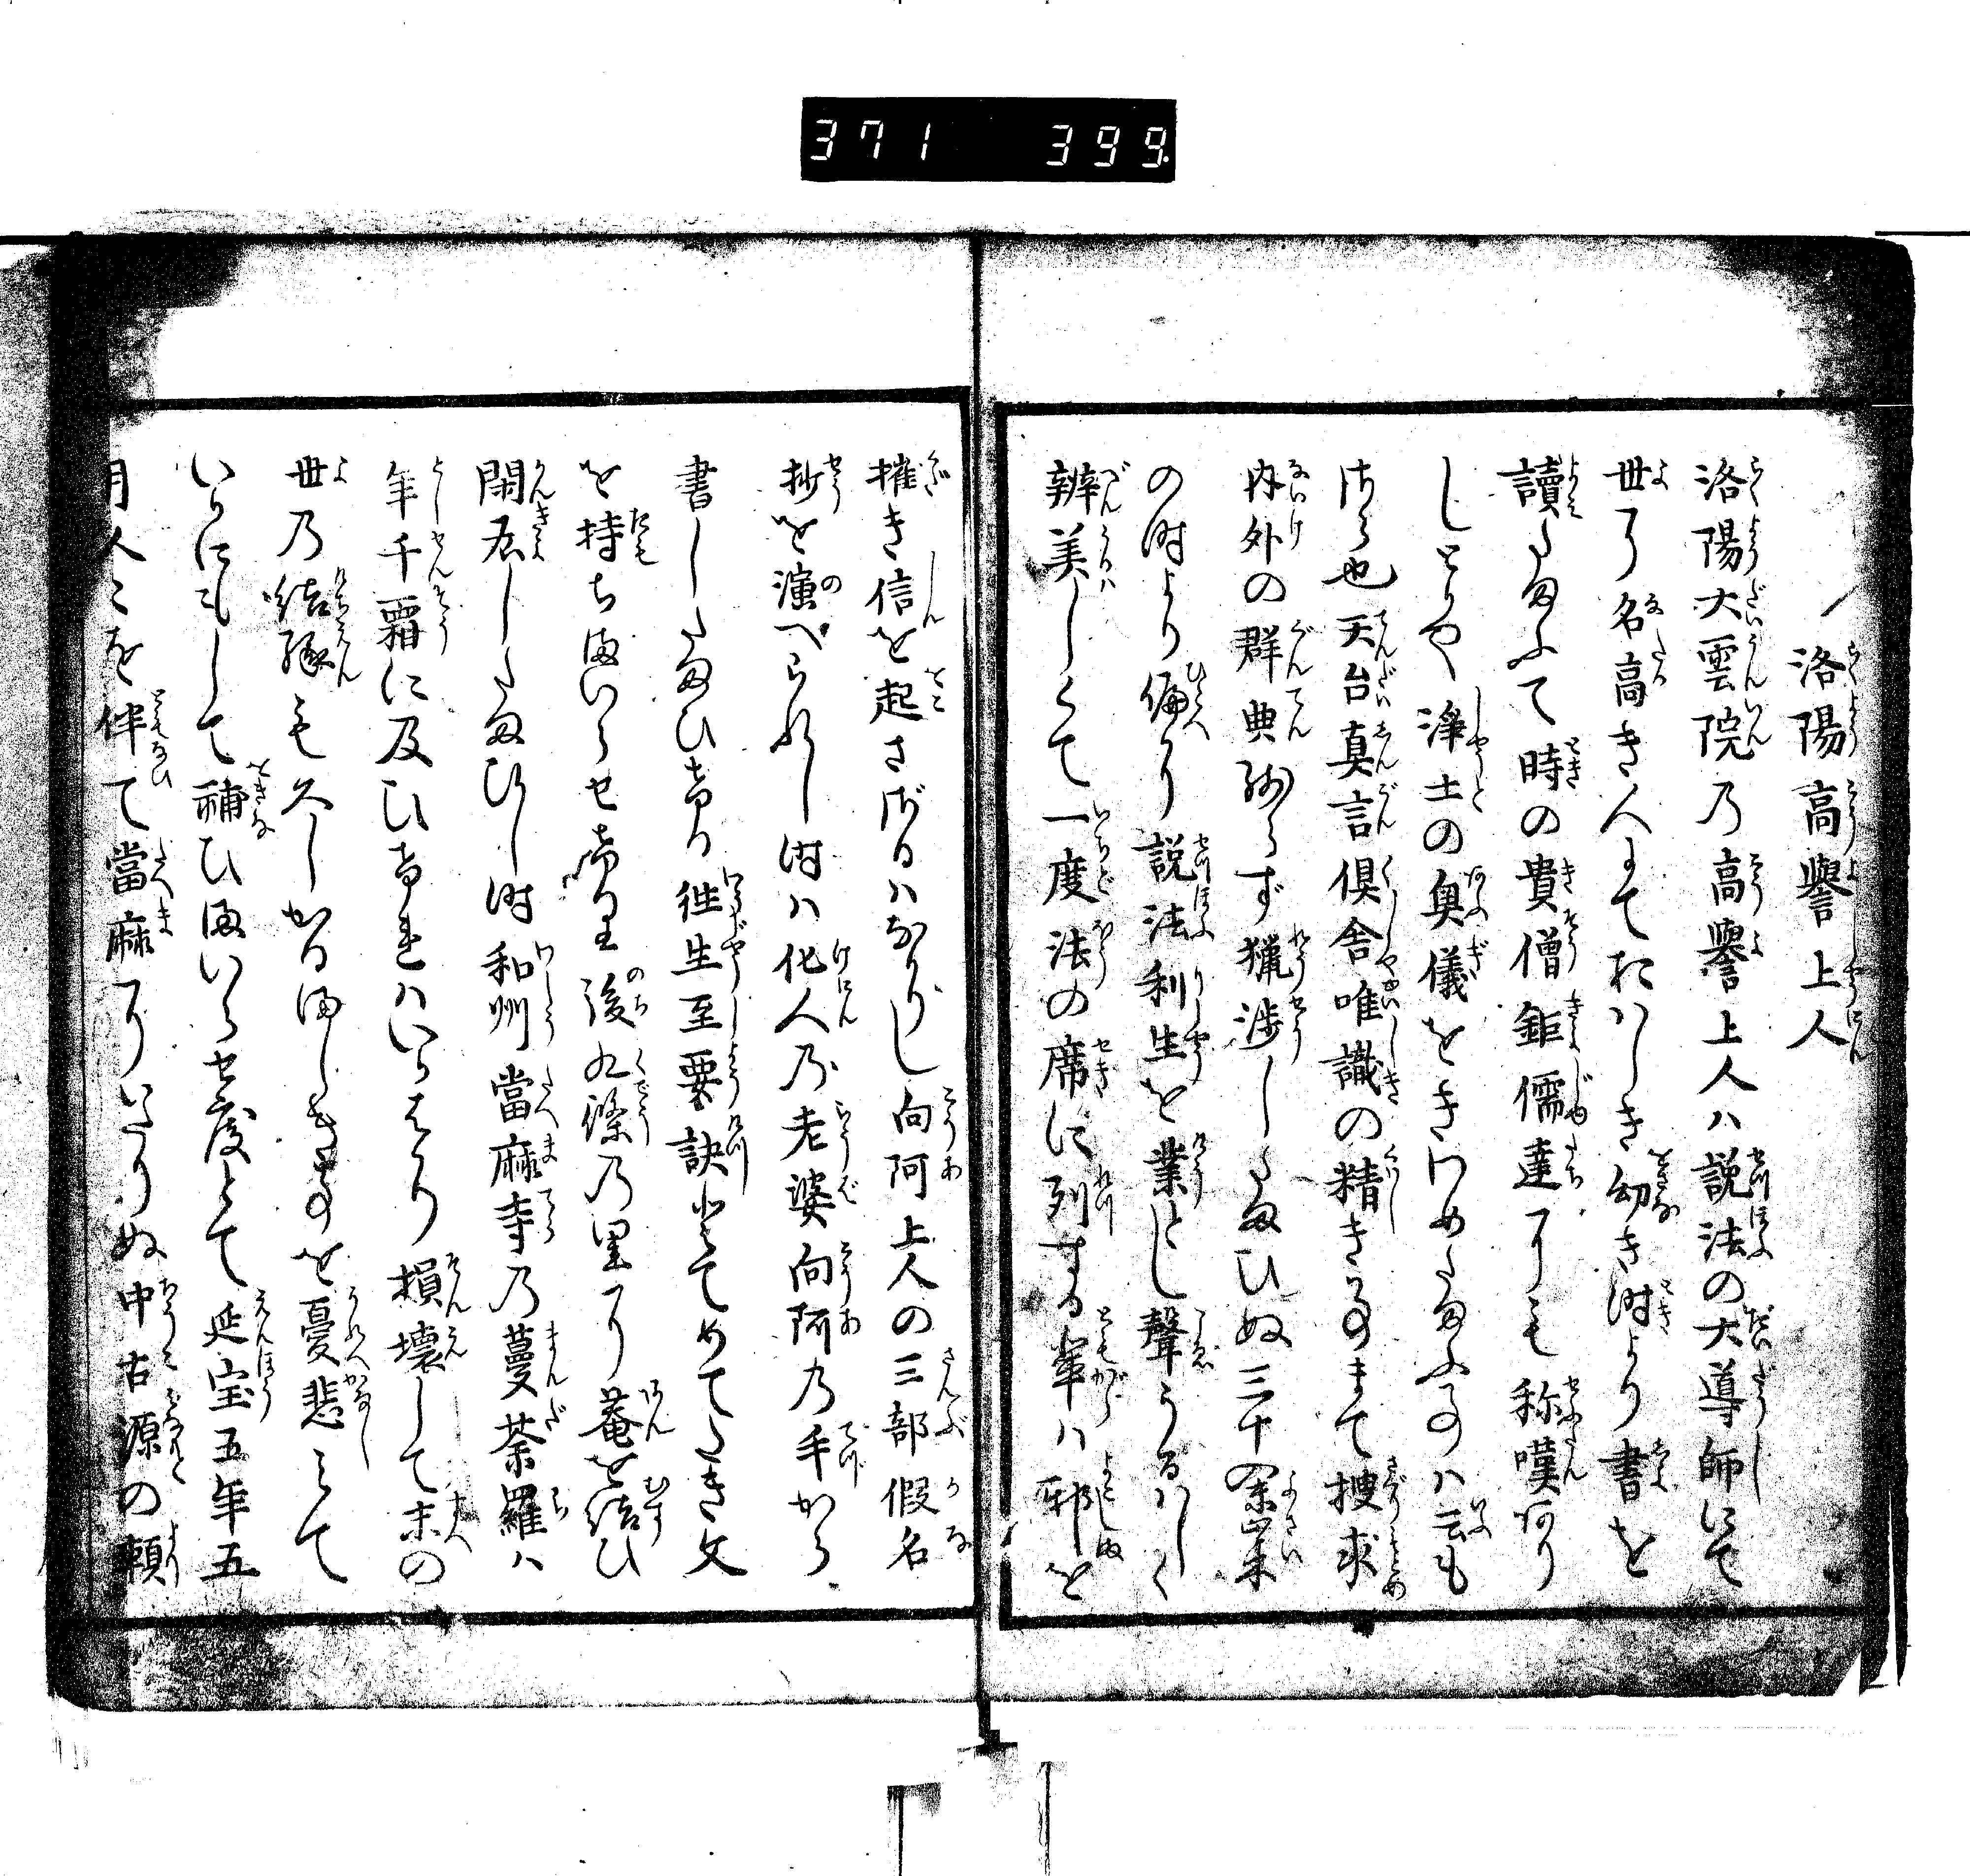 371 399
洛陽高譽上人
洛陽大雲院乃高譽上人ハ説法の大導師にて
世に名高き人にておハしき幼き時より書を
讀たまふて時の貴僧鉅儒達にも称嘆あり
しとかや浄土の奥儀をときハめたまふ事ハ云も
さら也天台真言倶舎唯識の精き事まて捜求
内外の群典残らず猟渉したまひぬ三十余歳
の時より偏に説法利生を業とし聲うるハしく
辨美しくて一度法の席に列する輩ハ邪を
摧き信を起さざるハなかりし向阿上人の三部假名
抄を演へられし時ハ化人乃老婆向阿乃手から
書したまひける往生至要訣とてめてたき文
を持ちまいらせける後九條乃里に菴を結ひ
閑居したまひし時和州當麻寺乃蔓荼羅ハ
年千霜に及ひけれハいたうより損壞して末の
世乃結縁も久しかるましき事を憂悲みて
いかにもして補ひまいらせ度とて延宝五年五
月人〻を伴て當麻にいたりぬ中古源の頼